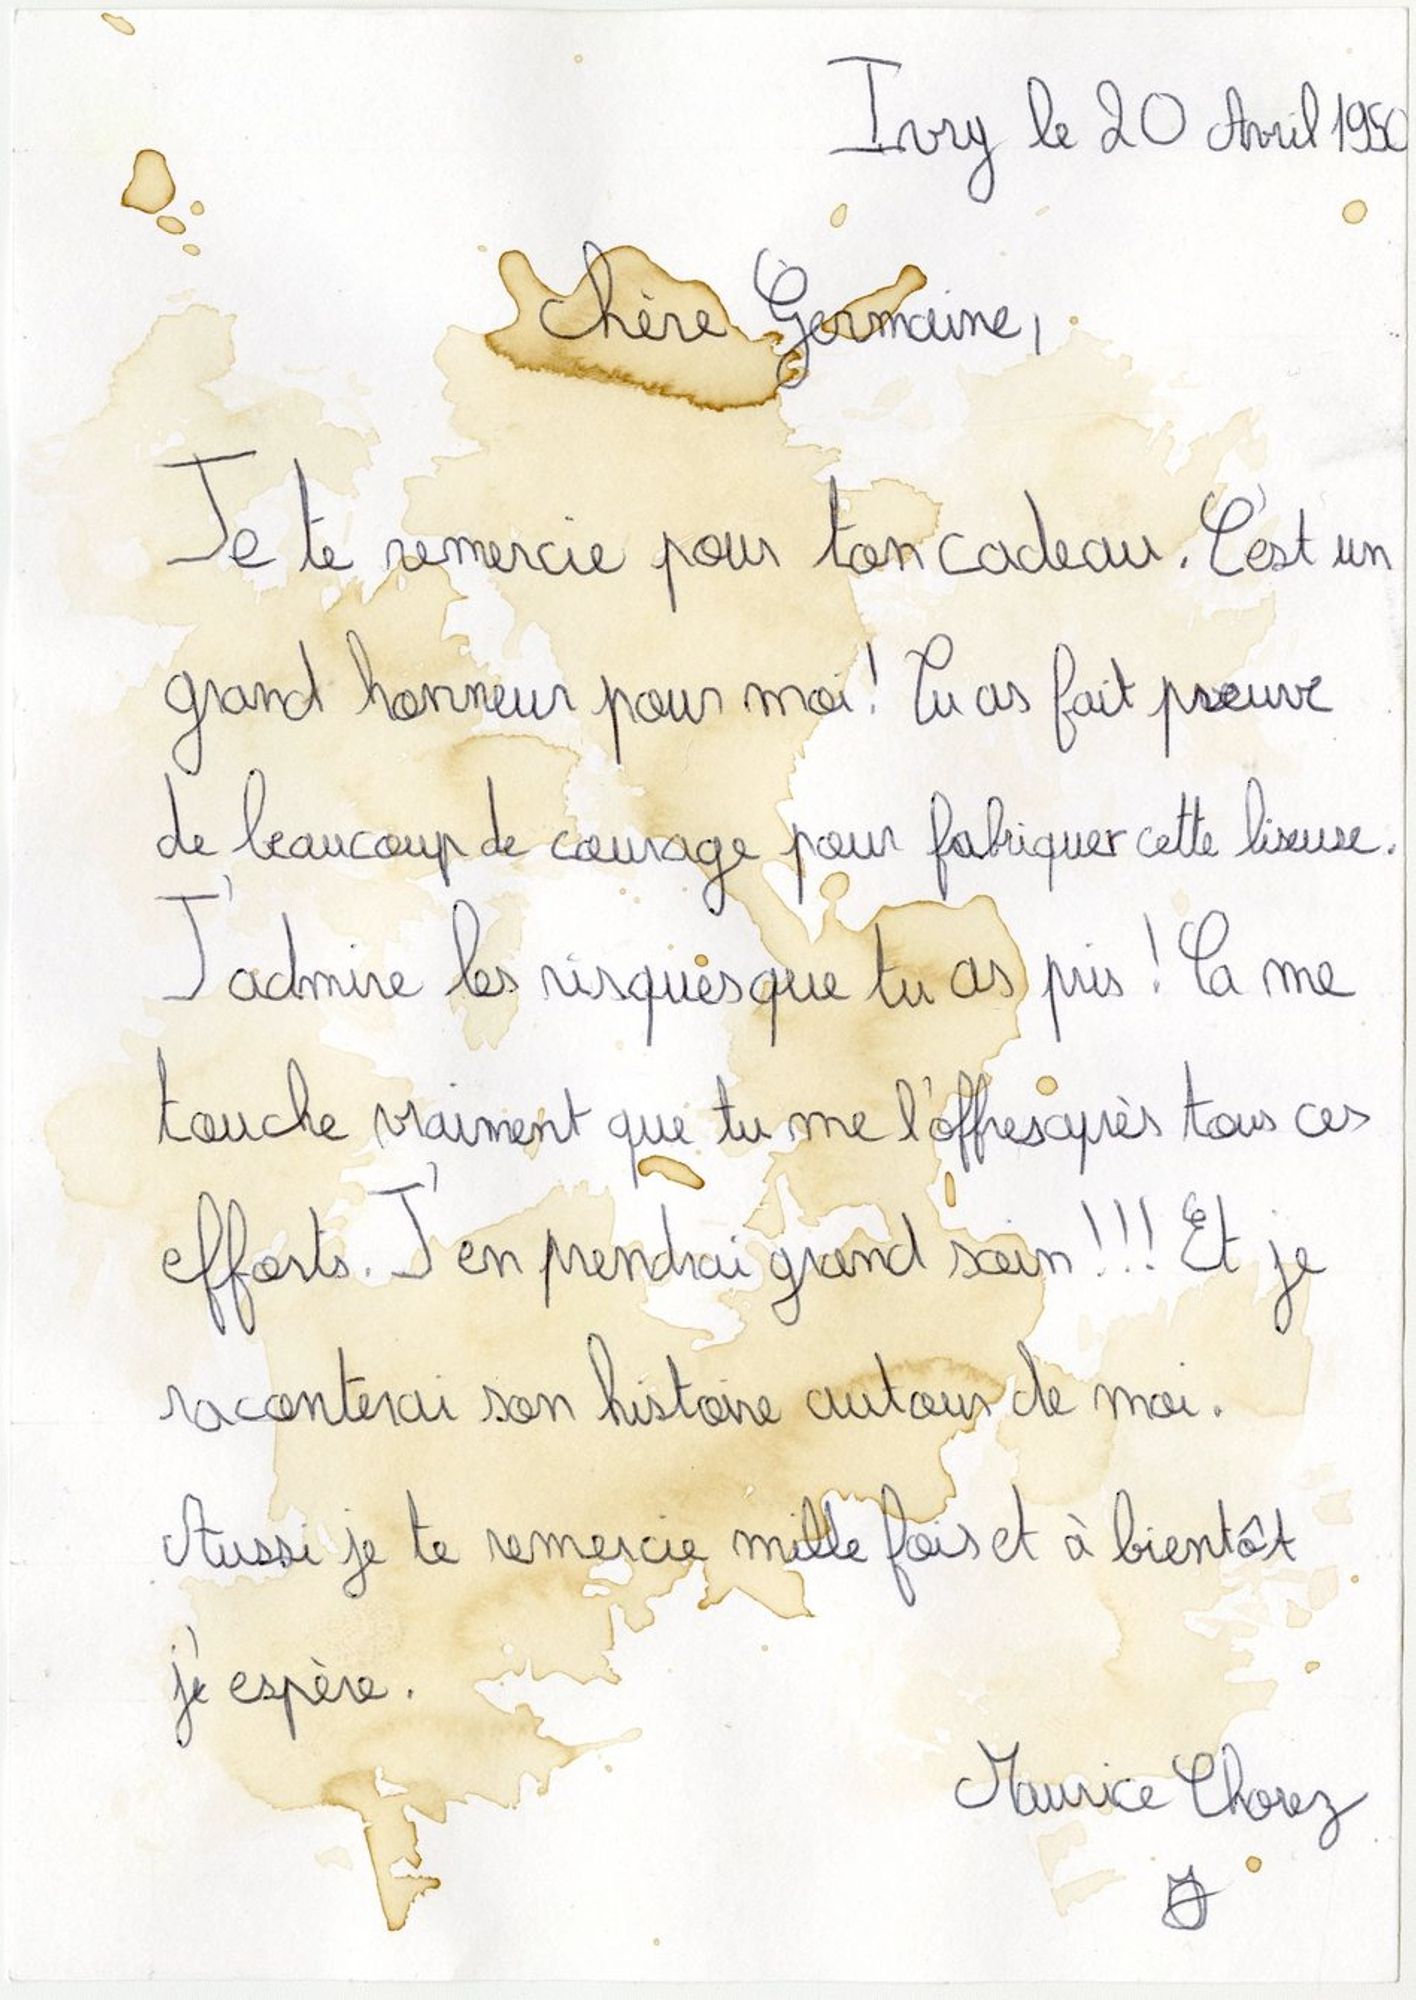 Ivry le 20 Avril 1950
chère Germaine,
Je te remercie pour ton cadeau. C'est un
grand honneur pour moi! Tu as fait preuve
de beaucoup de courage pour fabriquer cette liseuse.
J'admire les risques que tu as pris! Ca me
touche vraiment que tu me l'offres après tous ces
efforts. J'en prendrai grand soin!!! Et je
raconterai son histoire autour de moi.
Aussi je te remercie mille fois et à bientôt
j'espère.
Maurice Thorez